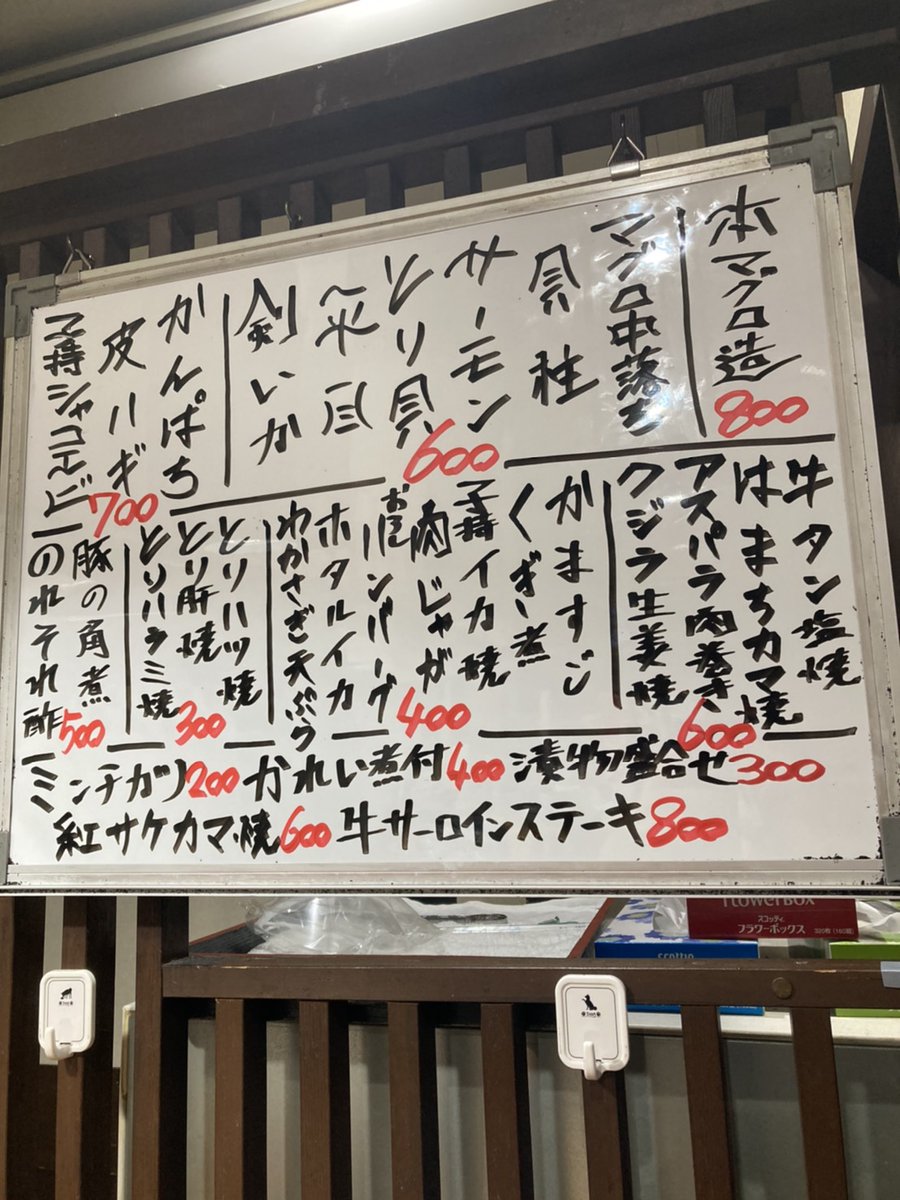 本マグロ造
800
マグロ中落ち
貝柱
サーモン
とり貝
つぶ貝
剣いか
600
かんぱち
皮ハギ
子持シャコエビ
700
牛タン塩焼
はまちカマ焼
アスパラ肉巻き
クジラ生姜焼
600
かますじ
くぎ煮
子持イカ焼
肉じゃが
おろしハンバーグ
ホタルイカ
わかさぎ天ぷら
400
とりハツ焼
とり肝焼
とりハラミ焼
300
豚の角煮
のれそれ酢
500
ミンチカツ200 かれい煮付400 漬物盛合せ300
紅サケカマ焼600 牛サーロインステーキ800
FLOWERBOX
スコッティ
フラワーボックス